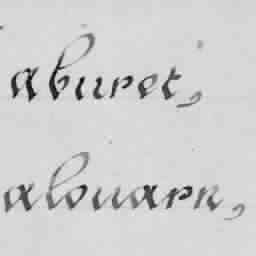 aburet,
alouarn,